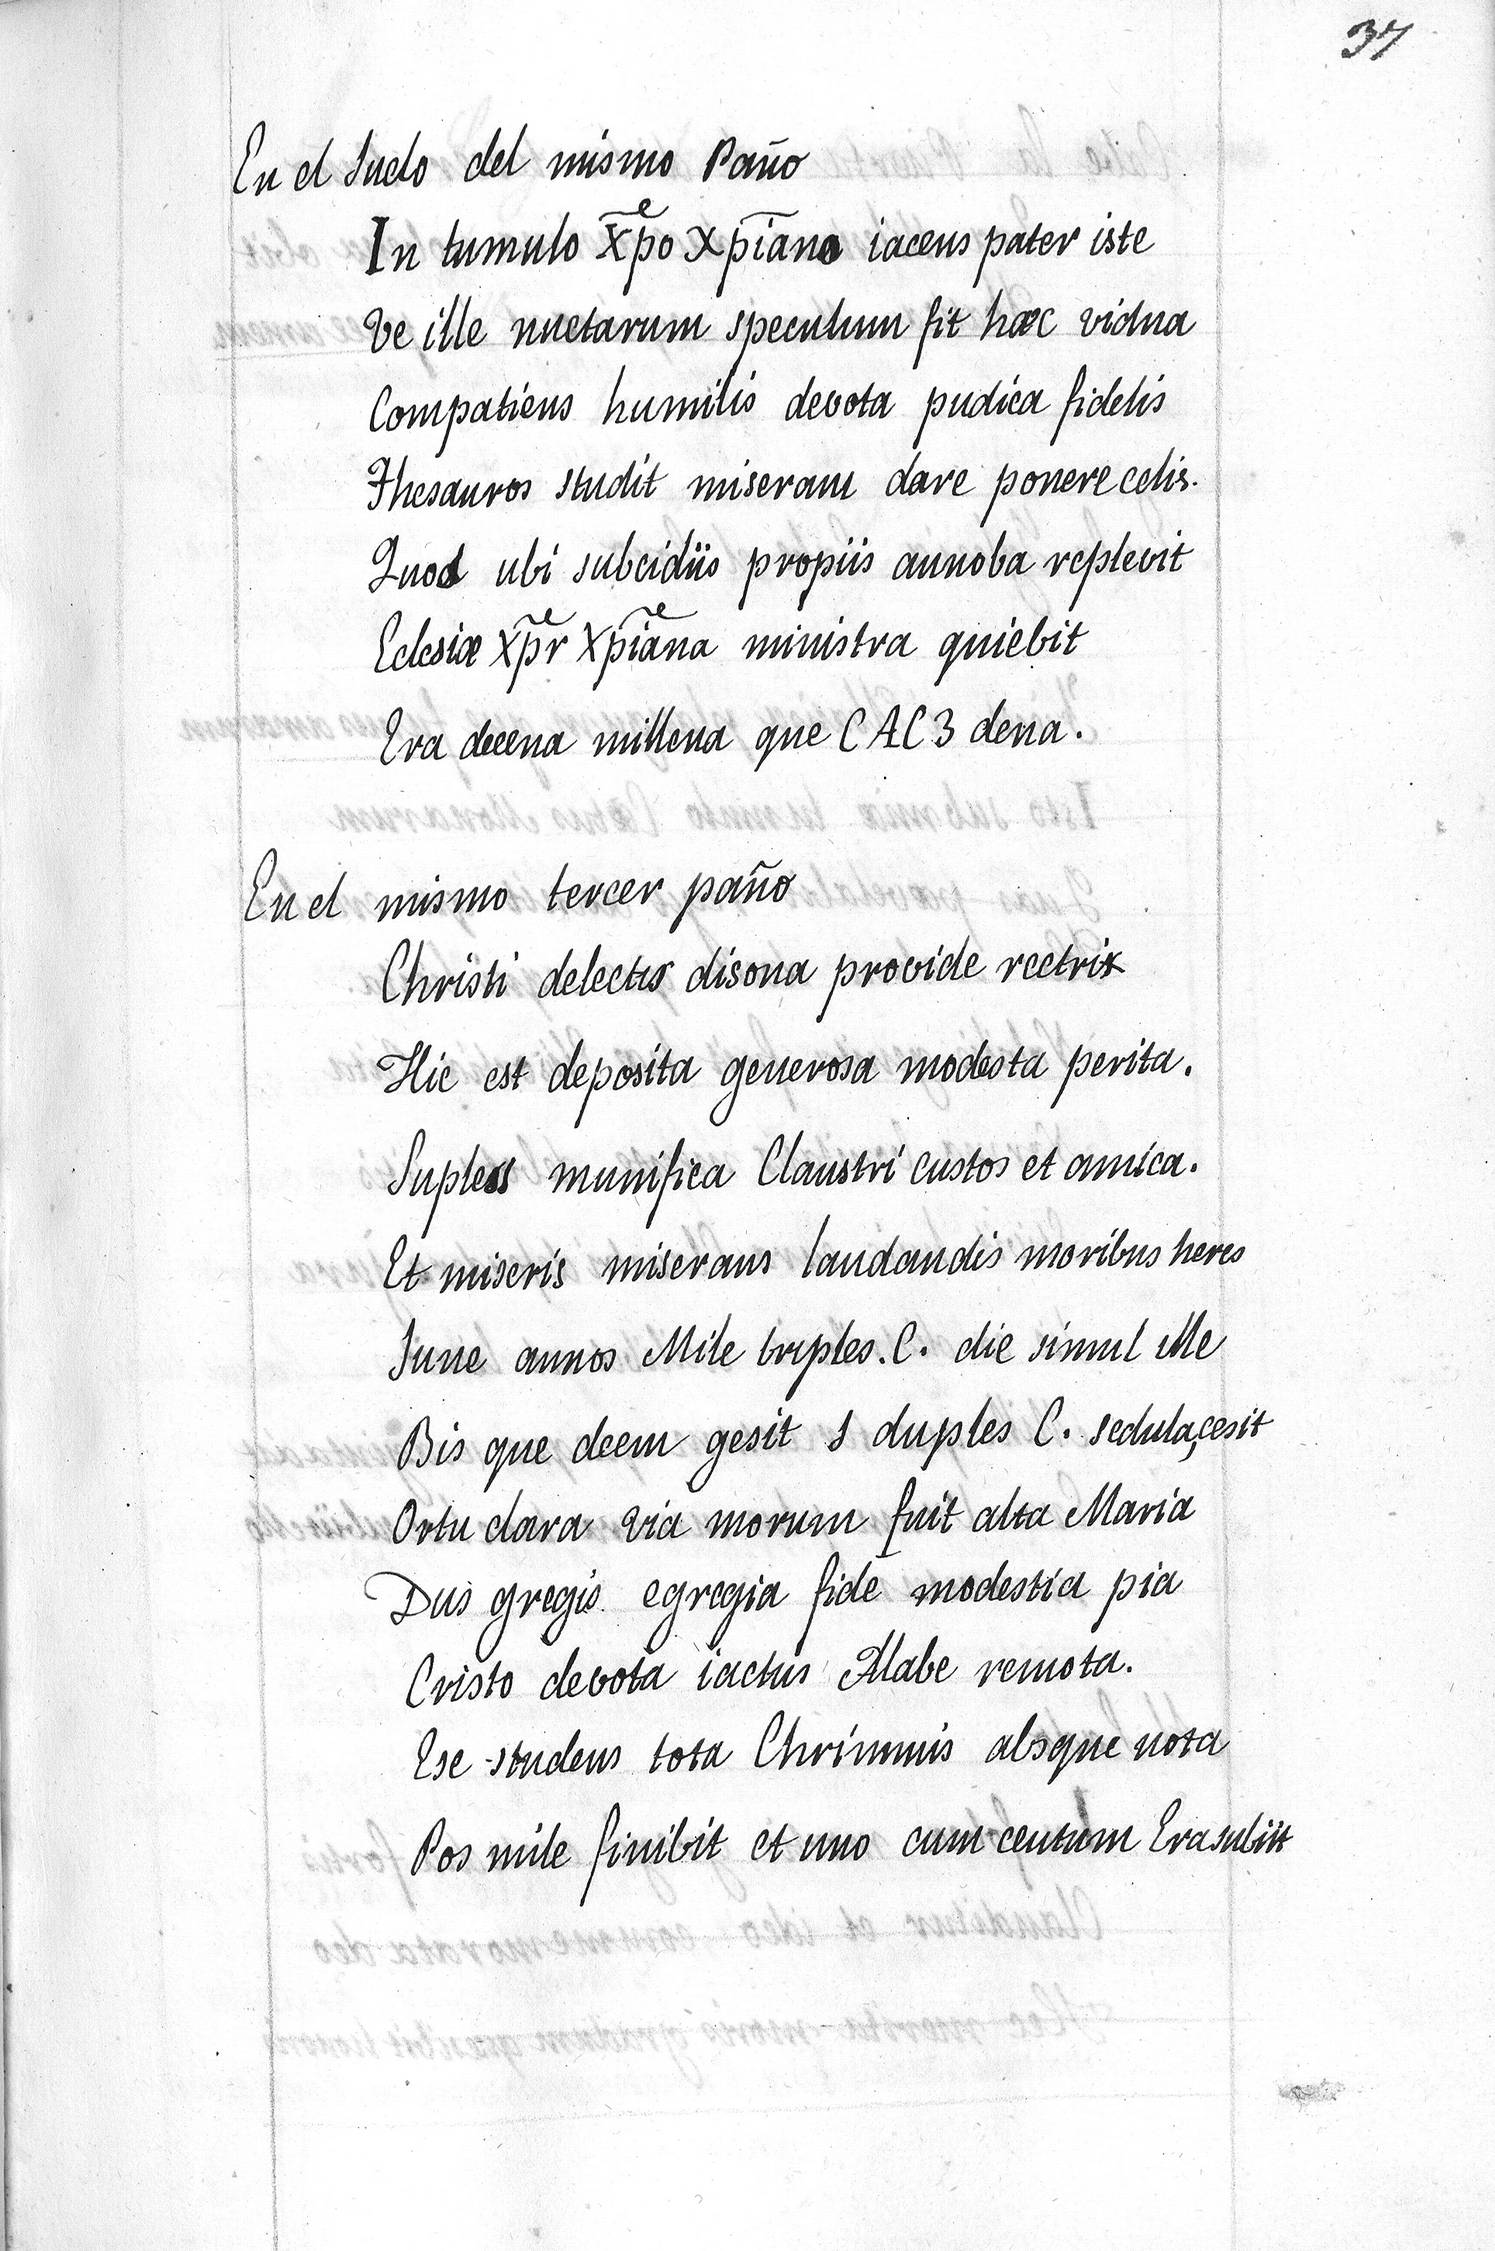 37
En el Suelo del mismo Paño
In tumulo Xp̄o Xp̄iana iacens pater iste
Ve ille nuctarum speculum fit hæc vidua
Compatiens humilis devota pudica fidelis
Thesauros studit miseram dare ponere celis.
Quod ubi subcidiis propiis annoba replevit
Eclesiæ Xp̄r Xp̄iana ministra quiebit
Era decena millena que C A C 3 dena.
En el mismo tercer paño
Christi delectis disona provide rectrix
Hic est deposita generosa modesta perita.
Supless munifica Claustri custos et amica.
Et miseris miserans laudandis moribus heres
Iune annos Mile triples. C. die simul Me
Bis que decm gesit s duples C. sedula, cesit
Ortu clara via morum fuit alta Maria
Dus gregis egregia fidē modestia pia
Cristo devota iactus Mabe remota.
Ese studens tota Chrimmis absque nota
Pos mile finibit et uno cum centum Era subiit